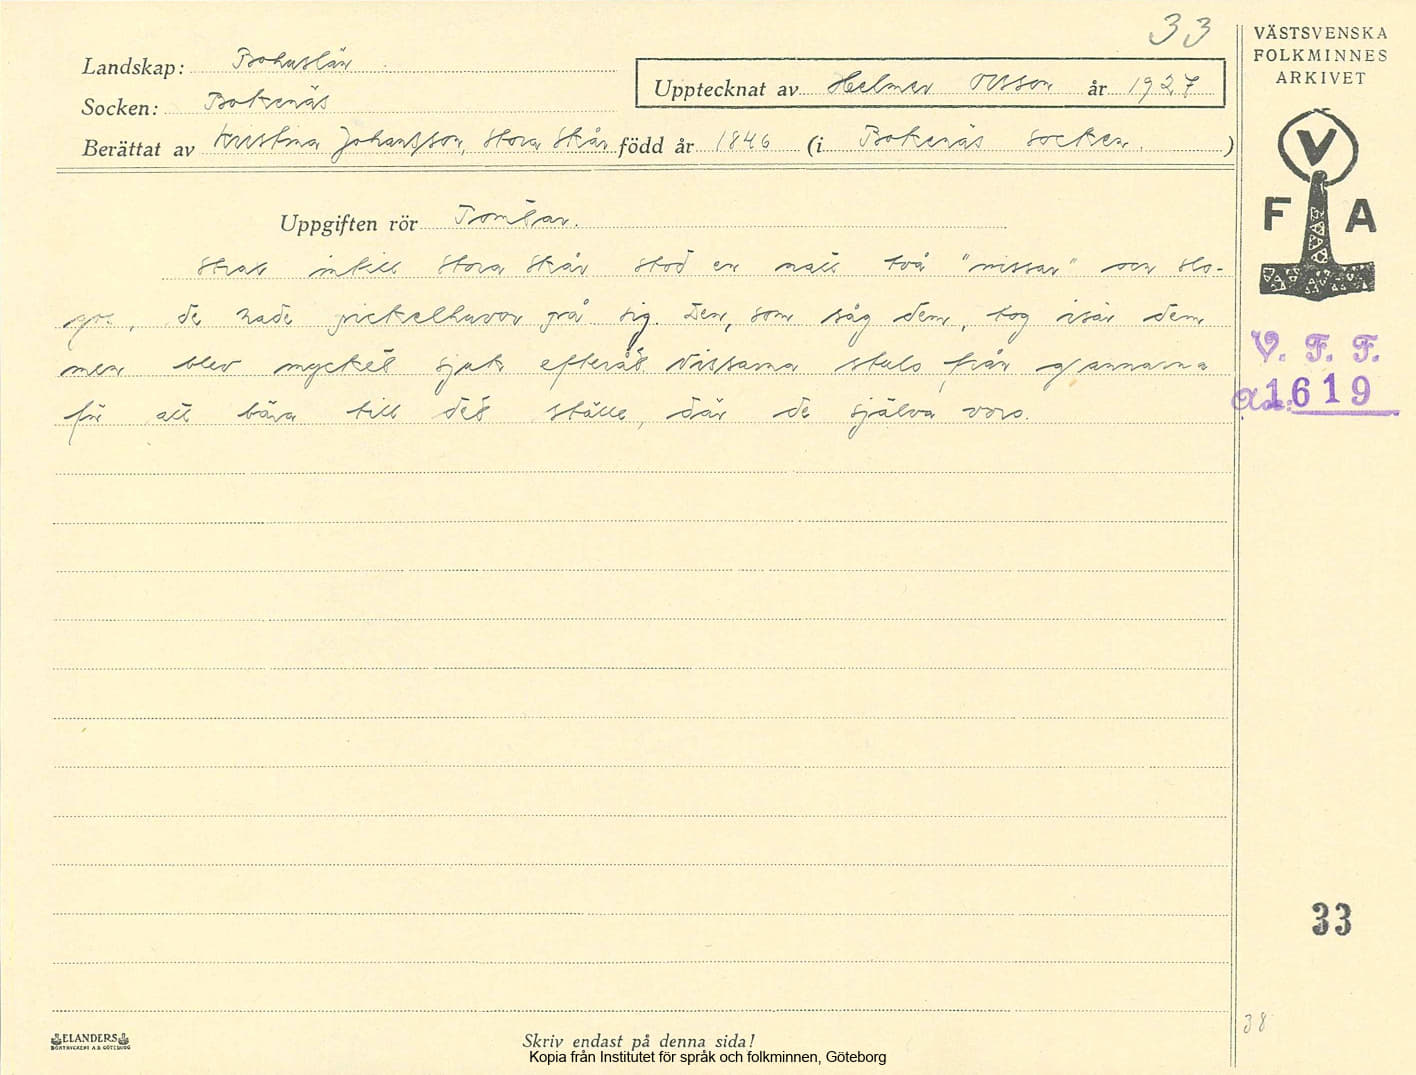 33
VÄSTSVENSKA
FOLKMINNES
ARKIVET
Landskap: Bohuslän
Upptecknat av Helmer Olsson år 1927
Socken: Bokenäs
Berättat av Kristina Johansson, Stora Skår född år 1846 (i Bokenäs socken. )
V
F A
Uppgiften rör Tomtar.
Strax intill Stora Skår stod en natt två "nissar" och slo-
gos, de hade pickelhuvor på sig. Den, som såg dem, tog isär dem
men blev mycket sjuk efteråt. Nissarna stulo från grannarna
för att bära till det ställe, där de själva voro.
V. F. F.
1619
33
38
ELANDERS
BOKTRYCKERI A.B. GÖTEBORG
Skriv endast på denna sida!
Kopia från Institutet för språk och folkminnen, Göteborg